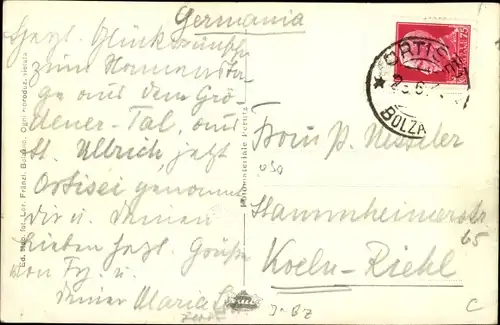 Germania
Herzl. Glückwünsche
zum Namensta-
ge aus dem Grö-
dener-Tal, aus
St. Ullrich, jetzt
Ortisei genannt
dir u. deinen
Lieben herzl. Grüße
von Fr. u.
deiner Maria
Ed. Lor. Fränzl, Bolzano. Ogni riproduz. vietata
Fotomateriale Perutz
ORTISEI
BOLZA
75
Frau P. Nesseler
Stammheimerstr
65
Koeln-Riehl
C